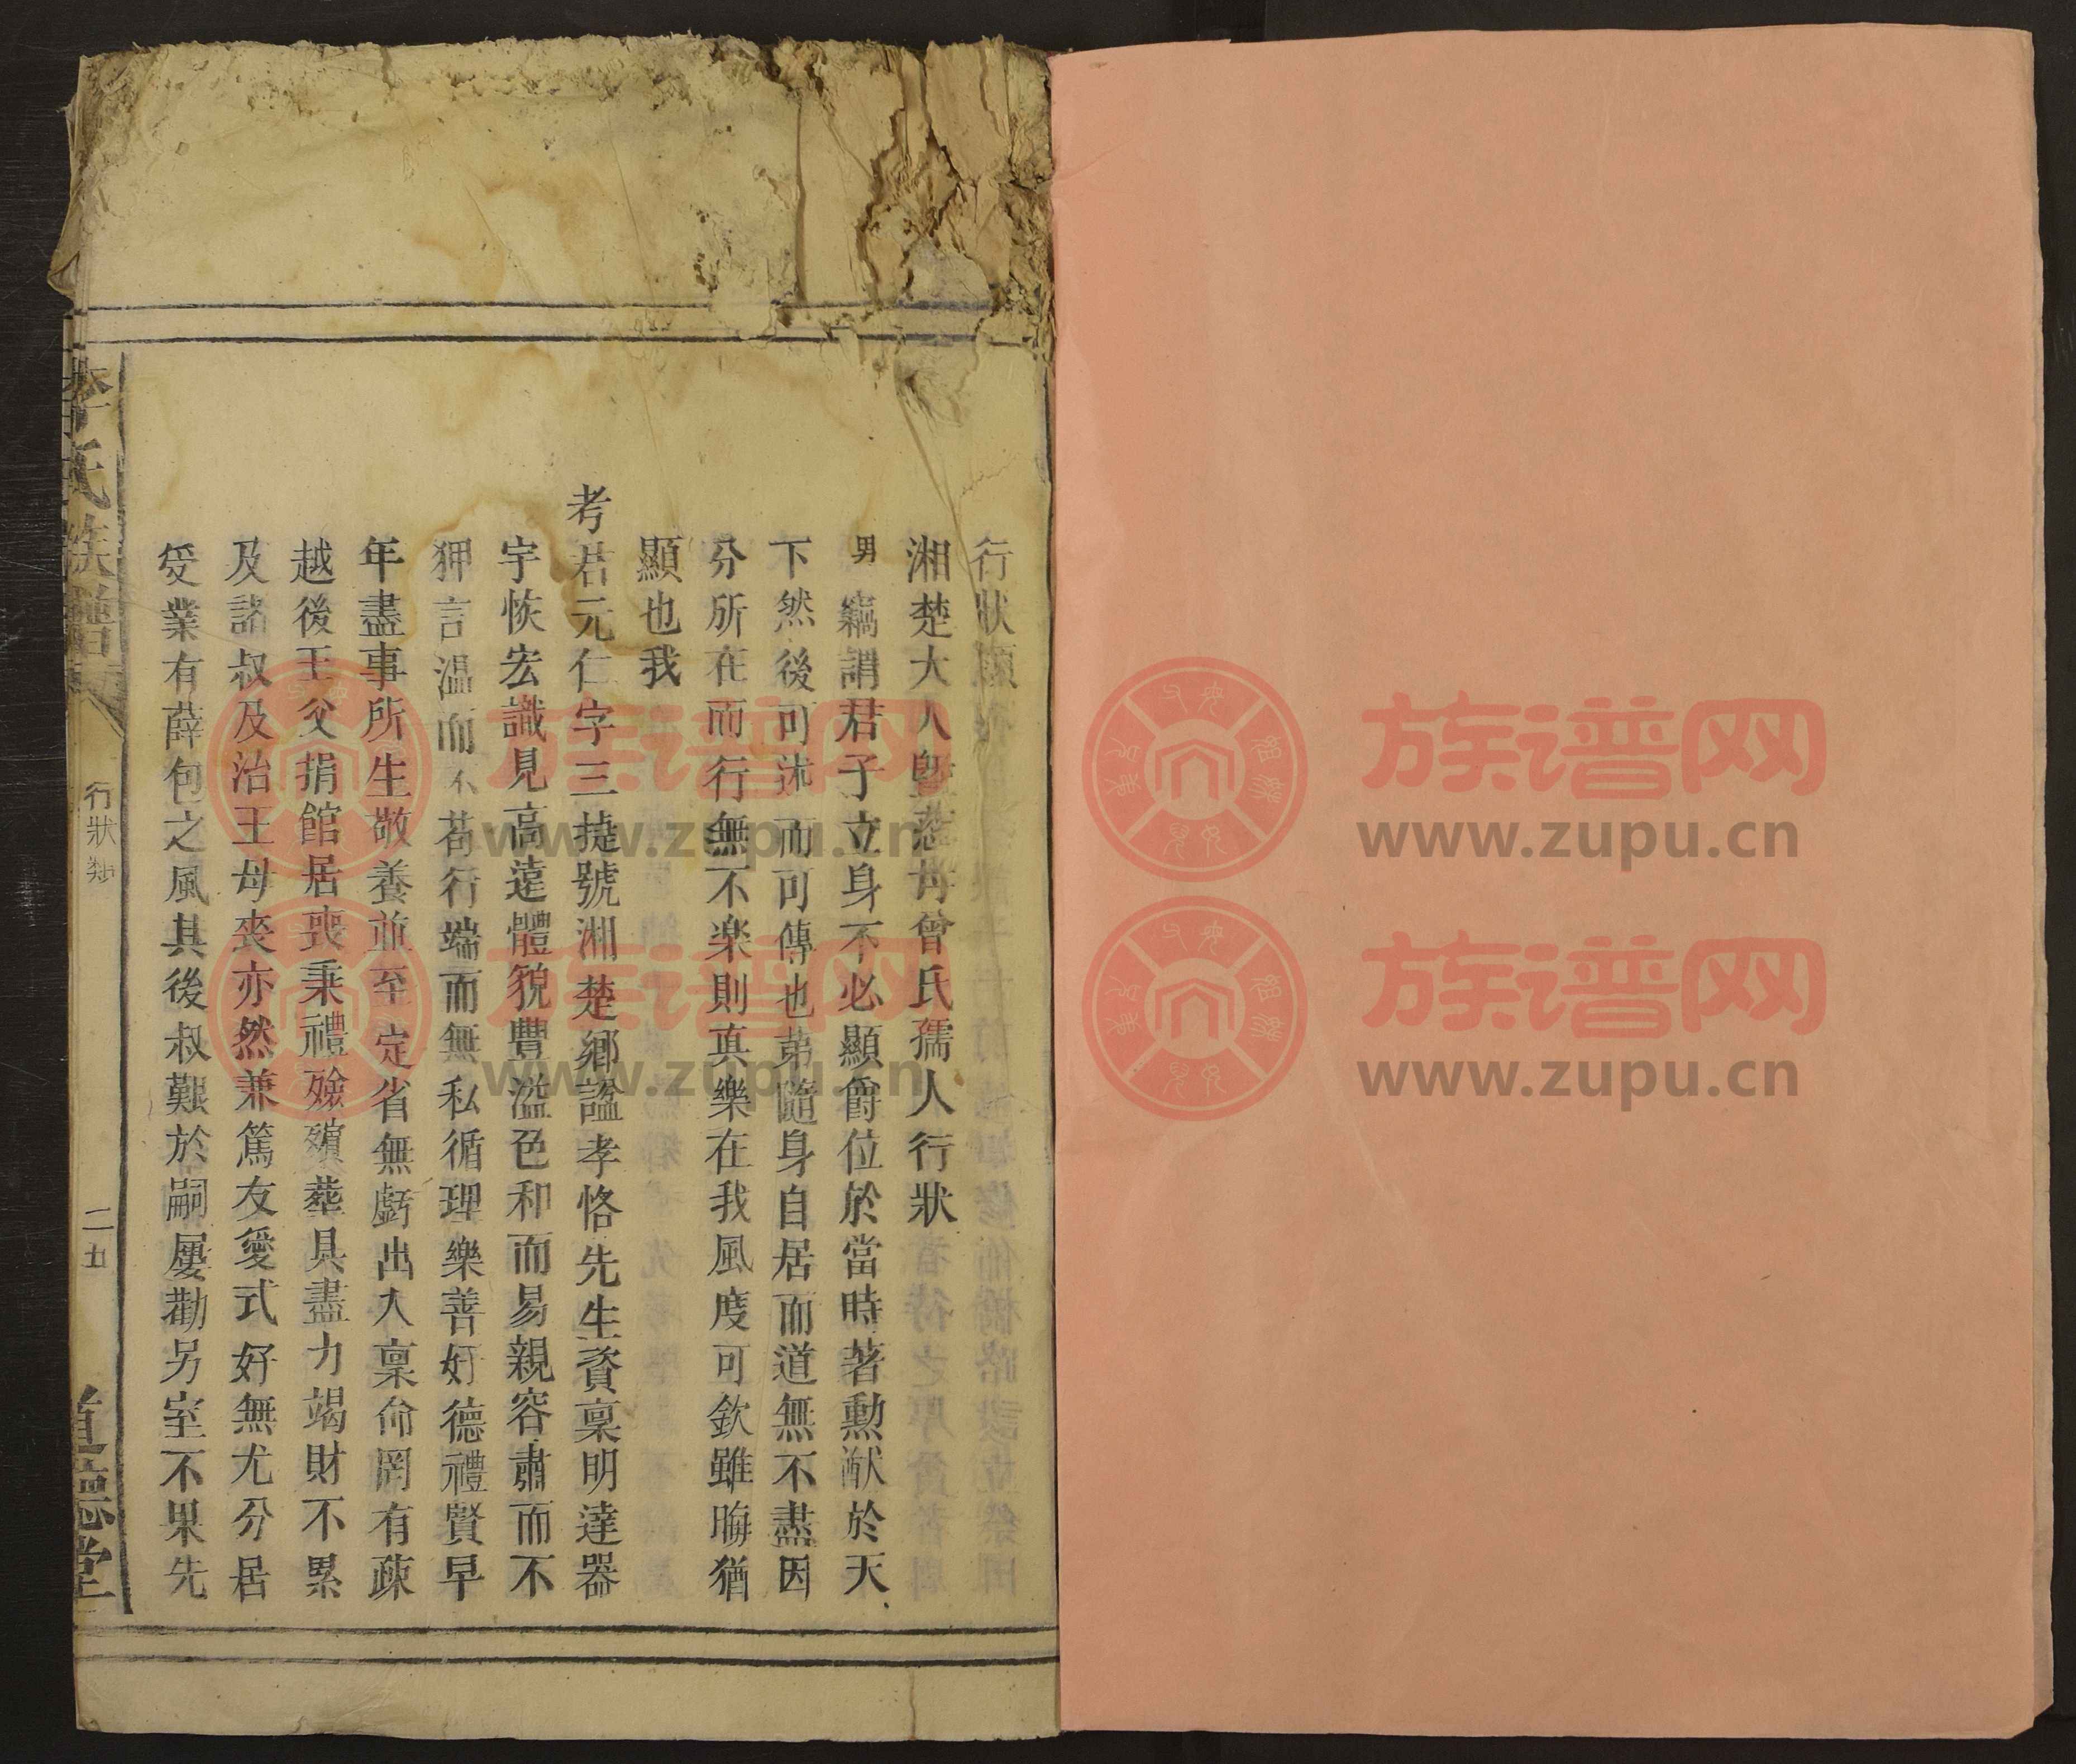 行狀類
湘楚大人曁慈母曾氏孺人行狀
男竊謂君子立身不必顯爵位於當時著勳猷於天
下然後可述而可傳也苐隨身自居而道無不盡因
分所在而行無不楽則真樂在我風度可欽雖晦猶
顯也我
考君元仁字三捷號湘楚鄉諡孝恪先生資稟明達器
宇恢宏識見高遠體貌豐溢色和而易親容肅而不
狎言溫而不苟行端而無私循理樂善好德禮賢早
年盡事所生敬養並至定省無虧出入稟命罔有疎
越後王父捐館居喪秉禮殮殯葬具盡力竭財不累
及諸叔及治王母喪亦然兼篤友愛式好無尤分居
受業有薛包之風其後叔艱於嗣屢勸另室不果先
李氏族譜
行狀類
二五
道德堂
族谱网
www.zupu.cn
族谱网
www.zupu.cn
族谱网
www.zupu.cn
族谱网
www.zupu.cn